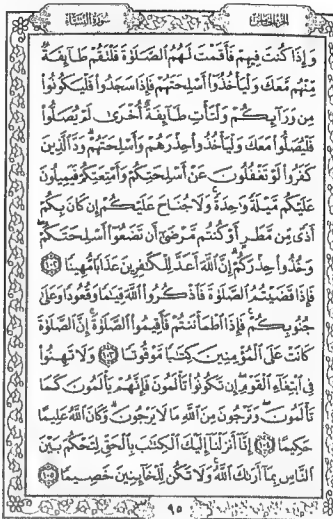 الجزء الخامس
سورة النساء
وَإِذَا كُنتَ فِيهِمْ فَأَقَمْتَ لَهُمُ ٱلصَّلَوٰةَ فَلْتَقُمْ طَآئِفَةٌ
مِّنْهُم مَّعَكَ وَلْيَأْخُذُوٓا۟ أَسْلِحَتَهُمْ فَإِذَا سَجَدُوا۟ فَلْيَكُونُوا۟
مِن وَرَآئِكُمْ وَلْتَأْتِ طَآئِفَةٌ أُخْرَىٰ لَمْ يُصَلُّوا۟
فَلْيُصَلُّوا۟ مَعَكَ وَلْيَأْخُذُوا۟ حِذْرَهُمْ وَأَسْلِحَتَهُمْ ۗ وَدَّ ٱلَّذِينَ
كَفَرُوا۟ لَوْ تَغْفُلُونَ عَنْ أَسْلِحَتِكُمْ وَأَمْتِعَتِكُمْ فَيَمِيلُونَ
عَلَيْكُم مَّيْلَةً وَٰحِدَةً ۚ وَلَا جُنَاحَ عَلَيْكُمْ إِن كَانَ بِكُمْ
أَذًى مِّن مَّطَرٍ أَوْ كُنتُم مَّرْضَىٰٓ أَن تَضَعُوٓا۟ أَسْلِحَتَكُمْ ۖ
وَخُذُوا۟ حِذْرَكُمْ ۗ إِنَّ ٱللَّهَ أَعَدَّ لِلْكَٰفِرِينَ عَذَابًا مُّهِينًا ﴿١٠٢﴾
فَإِذَا قَضَيْتُمُ ٱلصَّلَوٰةَ فَٱذْكُرُوا۟ ٱللَّهَ قِيَٰمًا وَقُعُودًا وَعَلَىٰ
جُنُوبِكُمْ ۚ فَإِذَا ٱطْمَأْنَنتُمْ فَأَقِيمُوا۟ ٱلصَّلَوٰةَ ۚ إِنَّ ٱلصَّلَوٰةَ
كَانَتْ عَلَى ٱلْمُؤْمِنِينَ كِتَٰبًا مَّوْقُوتًا ﴿١٠٣﴾ وَلَا تَهِنُوا۟
فِى ٱبْتِغَآءِ ٱلْقَوْمِ ۖ إِن تَكُونُوا۟ تَأْلَمُونَ فَإِنَّهُمْ يَأْلَمُونَ كَمَا
تَأْلَمُونَ ۖ وَتَرْجُونَ مِنَ ٱللَّهِ مَا لَا يَرْجُونَ ۗ وَكَانَ ٱللَّهُ عَلِيمًا
حَكِيمًا ﴿١٠٤﴾ إِنَّآ أَنزَلْنَآ إِلَيْكَ ٱلْكِتَٰبَ بِٱلْحَقِّ لِتَحْكُمَ بَيْنَ
ٱلنَّاسِ بِمَآ أَرَىٰكَ ٱللَّهُ ۚ وَلَا تَكُن لِّلْخَآئِنِينَ خَصِيمًا ﴿١٠٥﴾
٩٥